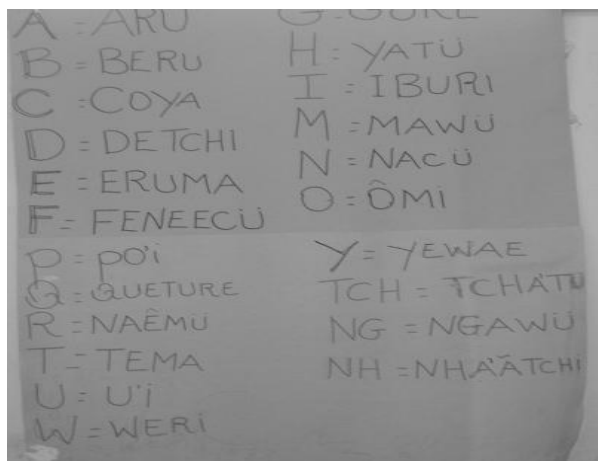 A = ARU
B = BERU
C = COYA
D = DETCHI
E = ERUMA
F = FENEECÜ
H = YATÜ
I = IBURI
M = MAWÜ
N = NACÜ
O = ÔMI
P = PO'I
Q = QUETURE
R = NAÊMÜ
T = TEMA
U = U'I
W = WERI
Y = YEWAE
TCH = TCHA'TÜ
NG = NGAWÜ
NH = NHA'ÃTCHI